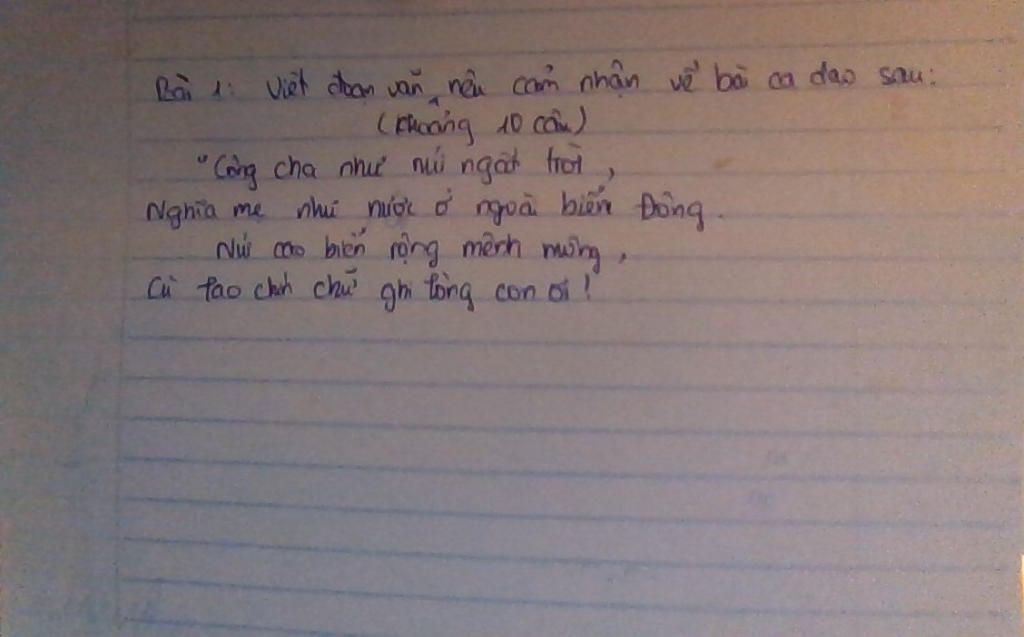 Bài 1: Viết đoạn văn nêu cảm nhận về bài ca dao sau:
(khoảng 10 câu)
"Công cha như núi ngất trời,
Nghĩa mẹ như nước ở ngoài biển Đông.
Núi cao biển rộng mênh mông,
Cù lao chín chữ ghi lòng con ơi!